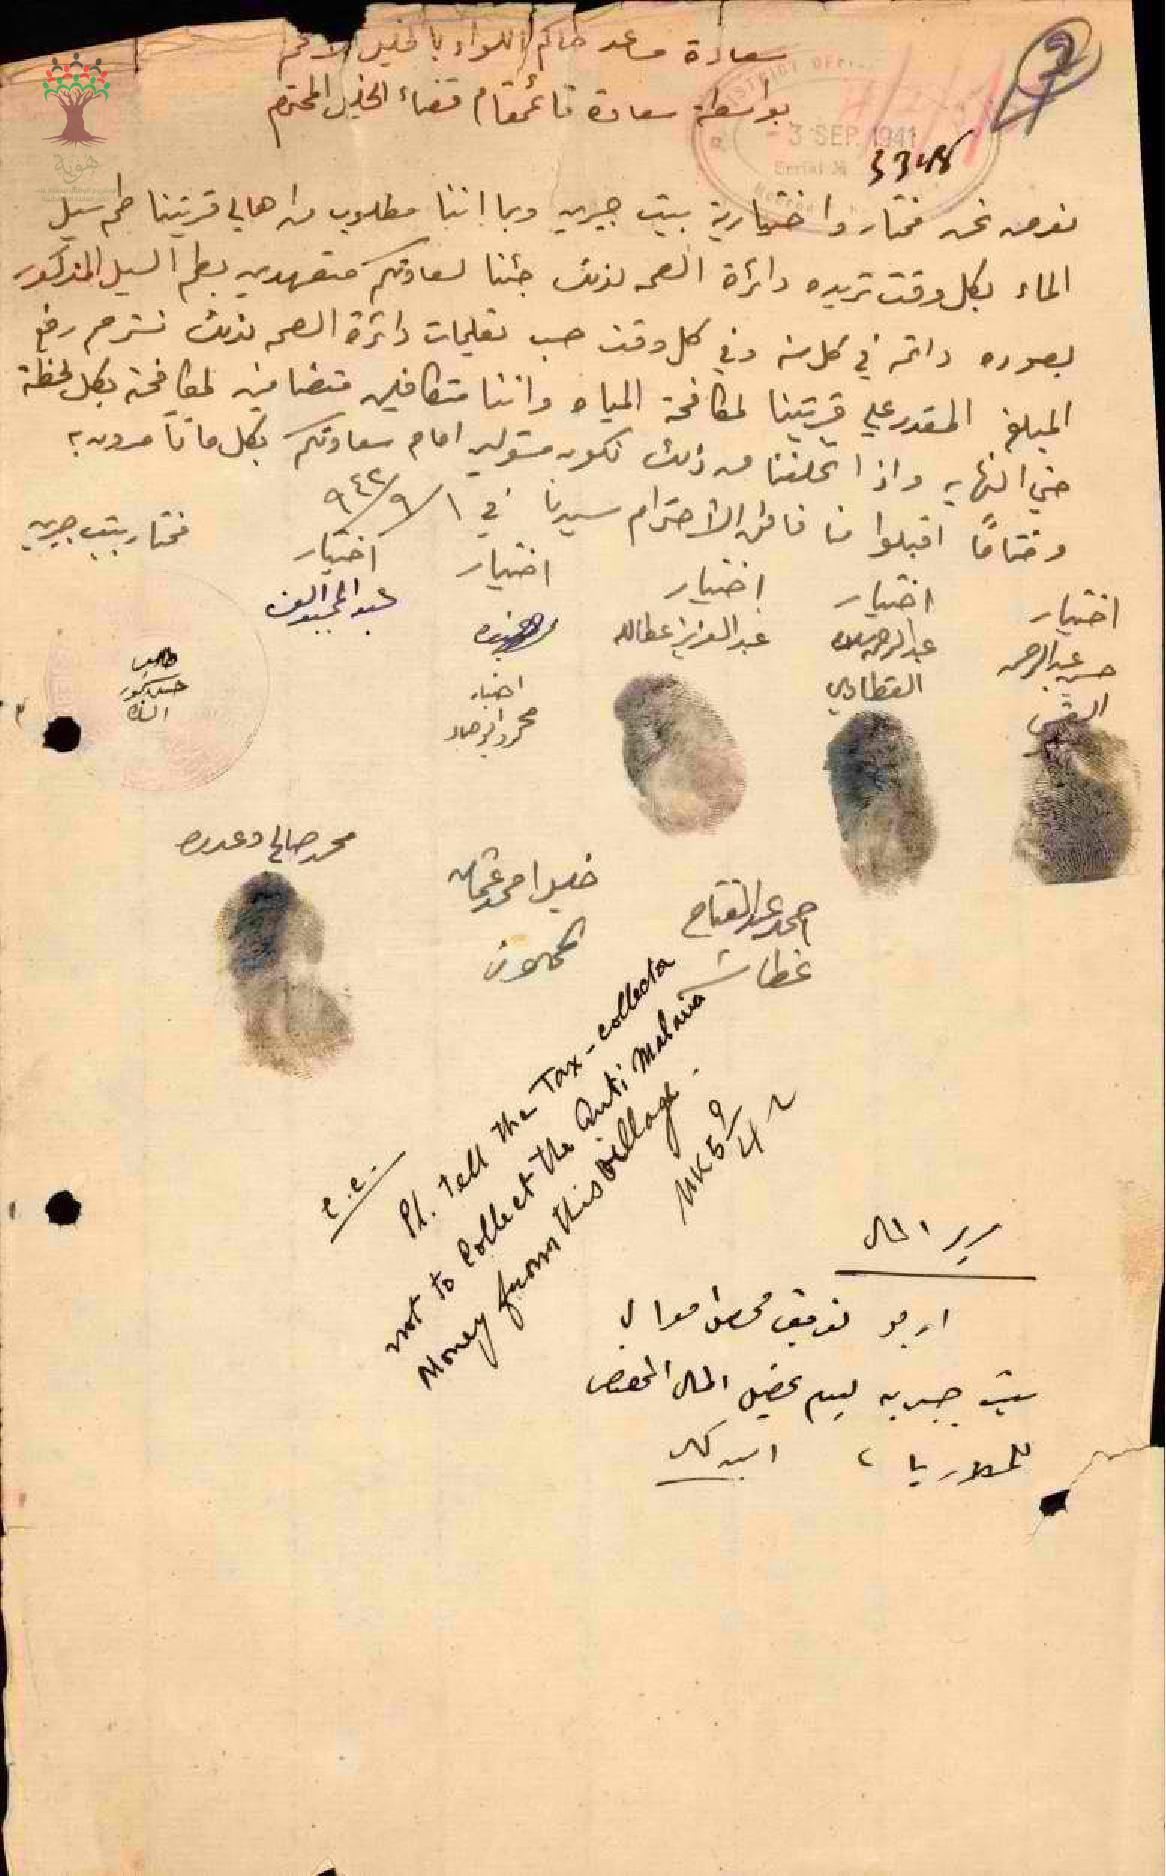 سعادة مساعد حاكم اللواء بالخليل الافخم
بواسطة سعادة قائمقام قضاء الخليل المحترم
DISTRICT OFFI
- 3 SEP. 1941
Serial №
3348
هوية
نعرض نحن مختار واختيارية بيت جبرين وبما اننا مطلوب من اهالي قريتنا طم سيل
الماء بكل وقت تريده دائرة الصحه لذلك جئنا لسعادتكم متعهدين بطم السيل المذكور
بصوره دائمه في كل سنه وفي كل وقت حسب تعليمات دائرة الصحه لذلك نسترحم رفع
المبلغ المقدر على قريتنا لمكافحة المياه واننا متكافلين متضامنين لمكافحته بكل لحظة
حتى النهايه واذا تخلفنا عن ذلك نكون مسئولين امام سعادتكم بكل ما تأمرون به
وختاماً اقبلوا منا فائق الاحترام سيدنا في ١/٩/٩٤٢
مختار بيت جبرين
اختيار
اختيار
اختيار
اختيار
اختيار
حسن عبدالرحمن
عبدالرحمن
القطاوي
عبدالعزيز عطاالله
اختيار
محمد صالح
خليل احمد عثمان
احمد عبدالفتاح
غطاشه
c.c.
Pl. Tell the Tax-collector
not to collect the Anti Malaria
Money from this village.
MK 5/9/42
ارجو محصل اموال
بيت جبرين تحصيل المال المخصص
للملاريا